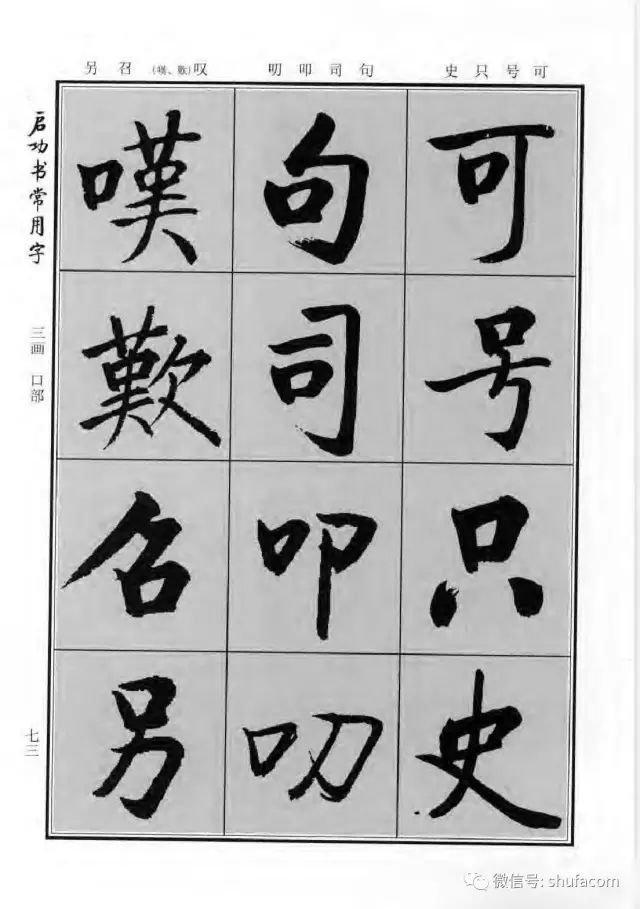 可号只史 句司叩叻 叹(嘆、歎)召另
可号只史
句司叩叻
嘆歎召另
启功书常用字
三画 口部
七三
微信号: shufacom